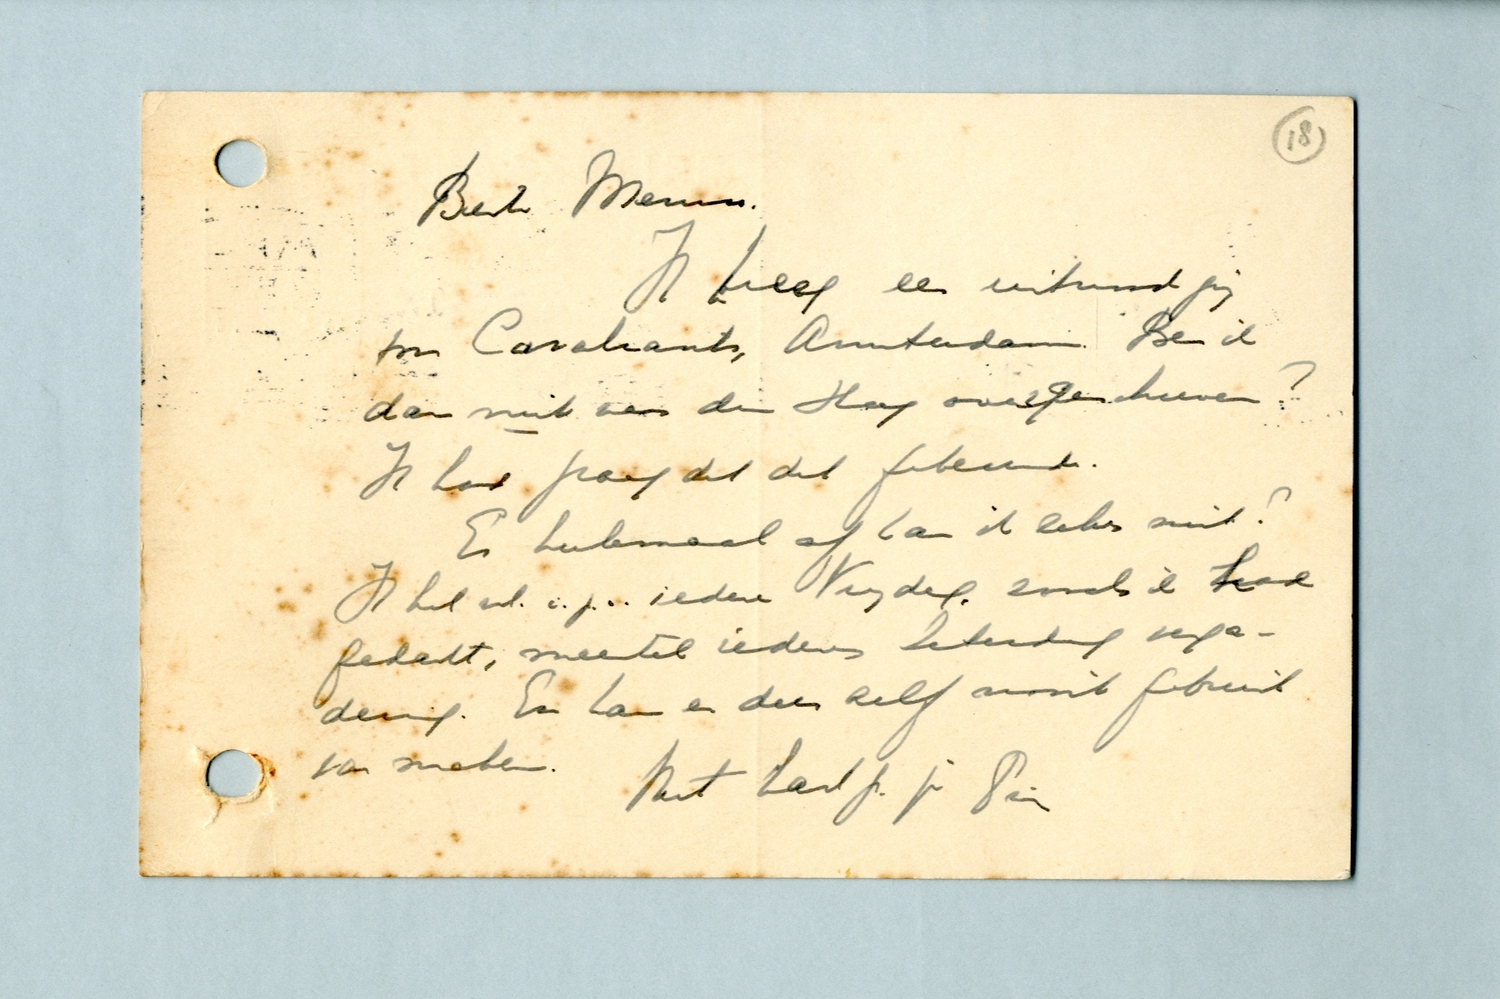 18
Beste Menno.
Ik kreeg een uitnoodiging
van Cavalcanti, Amsterdam. Ben ik
dan niet van den Haag overgeschreven?
Ik had graag dat dat gebeurde.
En heelemaal af kan ik zeker niet?
Ik heb nl. i.p.v. iedere Vrijdag, zooals ik had
gedacht, meestal iedere Zaterdag verga-
dering. En kan er dus zelf nooit gebruik
van maken.
Met hart. gr. je Pim